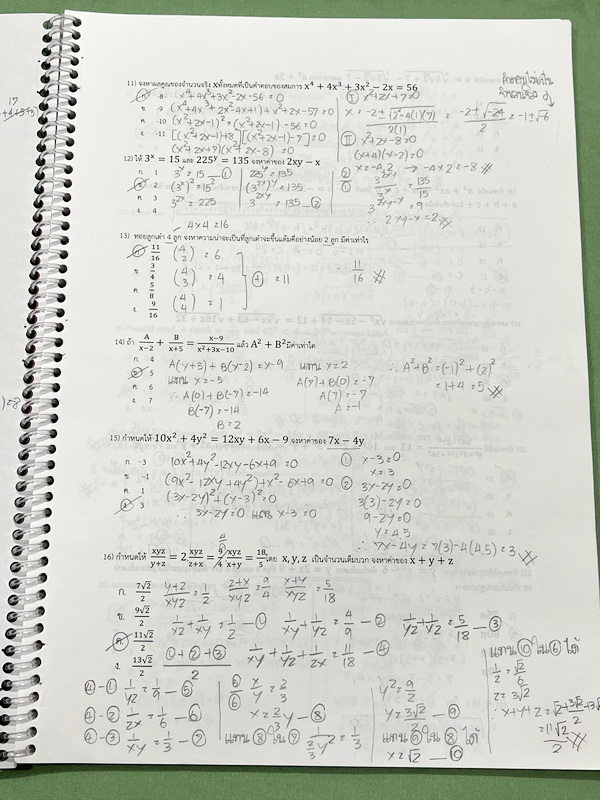 11) จงหาผลคูณของจำนวนจริง xทั้งหมดที่เป็นคำตอบของสมการ x⁴ + 4x³ + 3x² − 2x = 56
ก. -8 x⁴+4x³+3x²-2x-56 =0
ข. -9 (x⁴+4x³+2x²-4x+1)+x²+2x-57=0
ค. -10 (x²+2x-1)²+(x²+2x-1)-56=0
ง. -11 [(x²+2x-1)+8][(x²+2x-1)-7]=0
(x²+2x+7)(x²+2x-8)=0
Ⅰ x²+2x+7=0
x = -2±√(2²-4(1)(7)) / 2(1) = -2±√-24 / 2 = -1±√-6
Ⅱ x²+2x-8=0
(x+4)(x-2)=0
x=-4,2 → -4×2=-8
12) ให้ 3ˣ = 15 และ 225ʸ = 135 จงหาค่าของ 2xy − x
ก. 1 3ˣ=15 —① 225ʸ=135
ข. 2 (3ˣ)²=15² (3²ˣ)ʸ=135
ค. 3 3²ˣ=225 3²ˣʸ=135 —②
ง. 4
②/① 3²ˣʸ/3ˣ = 135/15
3²ˣʸ⁻ˣ=9
∴ 2xy-x=2
13) ทอยลูกเต๋า 4 ลูก จงหาความน่าจะเป็นที่ลูกเต๋าจะขึ้นแต้มคี่อย่างน้อย 2 ลูก มีค่าเท่าไร
4×4=16
ก. 11/16 (4 2) = 6
ข. 3/4 (4 3) = 4 ⊕ = 11 ∴ 11/16
ค. 5/8
ง. 9/16 (4 4) = 1
14) ถ้า A/(x−2) + B/(x+5) = (x−9)/(x²+3x−10) แล้ว A² + B² มีค่าเท่าใด
ก. 4 A(x+5)+B(x-2)=x-9 แทน x=2 ∴A²+B²=(-1)²+(2)²
ข. 5 แทน x=-5 A(7)+B(0)=-7 =1+4=5
ค. 6 ∴A(0)+B(-7)=-14 A(7)=-7
ง. 7 B(-7)=-14 A=-1
B=2
15) กำหนดให้ 10x² + 4y² = 12xy + 6x − 9 จงหาค่าของ 7x − 4y
ก. -3 10x²+4y²-12xy-6x+9=0
ข. -1 (9x²-12xy+4y²)+x²-6x+9=0
ค. 1 (3x-2y)²+(x-3)²=0
ง. 3 3x-2y=0 และ x-3=0
① x-3=0
x=3
② 3x-2y=0
3(3)-2y=0
9-2y=0
y=4.5
∴ 7x-4y=7(3)-4(4.5)=3
16) กำหนดให้ xyz/(y+z) = 2 xyz/(z+x) = 9/4 xyz/(x+y) = 18/5 โดย x, y, z เป็นจำนวนเต็มบวก จงหาค่าของ x + y + z
ก. 7√2/2 (y+z)/xyz = 1/2 (z+x)/xyz = 4/9 (x+y)/xyz = 5/18
ข. 9√2/2 1/xz+1/xy=1/2 —① 1/xy+1/yz=4/9 —② 1/yz+1/xz=5/18 —③
ค. 11√2/2
ง. 13√2/2 (①+②+③)/2 1/xy+1/yz+1/zx=11/18 —④
④-① 1/yz=1/9 —⑤
④-② 1/zx=1/6 —⑥
④-③ 1/xy=1/3 —⑦
⑥/⑤ x/y=2/3
x=2/3 y —⑧
แทน ⑧ ใน ⑦ 1/(2/3 y²)=1/3
y²=9/2
y=3√2/2 —⑨
แทน ⑨ ใน ⑧ ได้
x=√2 —⑩
แทน ⑩ ใน ⑥ ได้
1/z=√2/6
z=3√2
∴ x+y+z=√2+3√2/2+3√2
=11√2/2